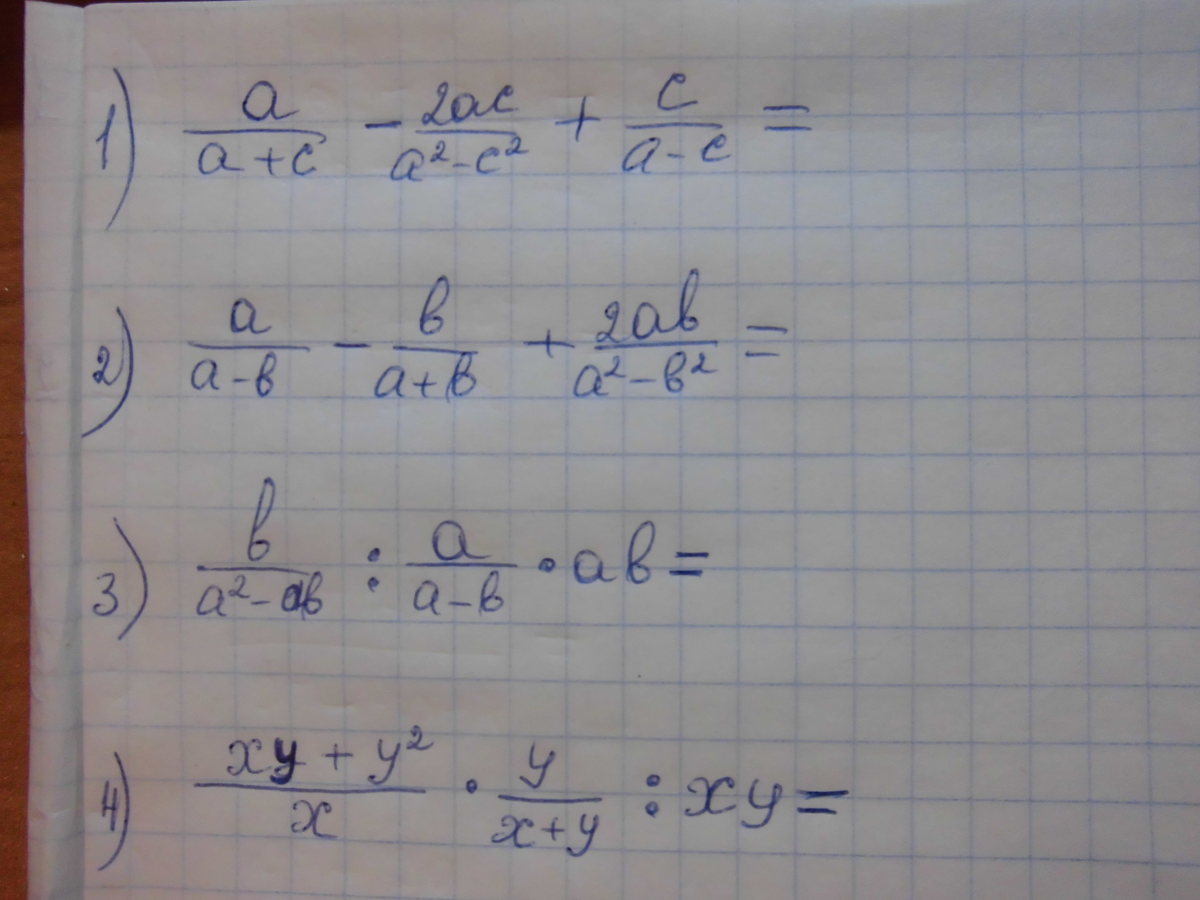 1) a/(a+c) - 2ac/(a²-c²) + c/(a-c) =
2) a/(a-b) - b/(a+b) + 2ab/(a²-b²) =
3) b/(a²-ab) : a/(a-b) · ab =
4) (xy+y²)/x · y/(x+y) : xy =